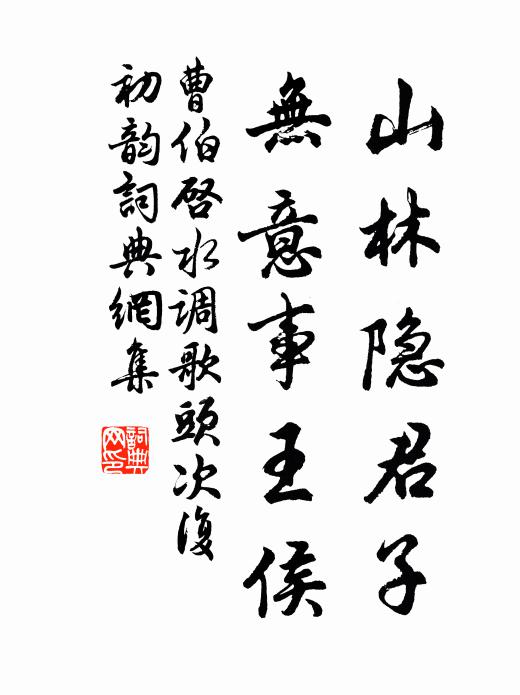 山林隐君子
無意事王侯
曹伯啓水调歌頭次復
初韵詞典網集
詞典网印